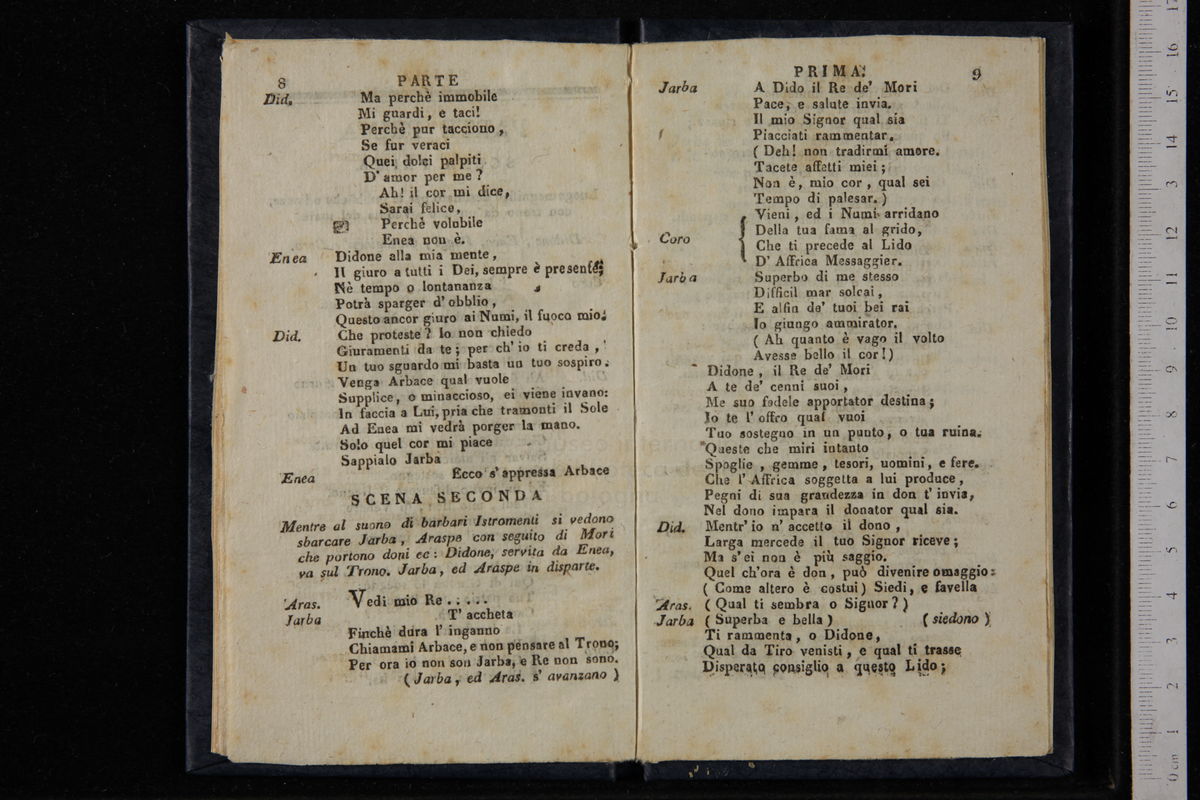 8 PARTE
Did. Ma perchè immobile
Mi guardi, e taci!
Perchè pur tacciono,
Se fur veraci
Quei dolci palpiti
D' amor per me?
Ah! il cor mi dice,
Sarai felice,
Perchè volubile
Enea non è.
Enea Didone alla mia mente,
Il giuro a tutti i Dei, sempre è presente;
Nè tempo o lontananza
Potrà sparger d' obblio,
Questo ancor giuro ai Numi, il fuoco mio.
Did. Che proteste? Io non chiedo
Giuramenti da te; per ch' io ti creda,
Un tuo sguardo mi basta un tuo sospiro.
Venga Arbace qual vuole
Supplice, o minaccioso, ei viene invano:
In faccia a Lui, pria che tramonti il Sole
Ad Enea mi vedrà porger la mano.
Solo quel cor mi piace
Sappialo Jarba
Enea Ecco s' appressa Arbace
SCENA SECONDA
Mentre al suono di barbari Istromenti si vedono
sbarcare Jarba, Araspe con seguito di Mori
che portono doni ec: Didone, servita da Enea,
va sul Trono. Jarba, ed Araspe in disparte.
Aras. Vedi mio Re . . . . .
Jarba T' accheta
Finchè dura l' inganno
Chiamami Arbace, e non pensare al Trono;
Per ora io non son Jarba, e Re non sono.
(Jarba, ed Aras. s' avanzano)
PRIMA. 9
Jarba A Dido il Re de' Mori
Pace, e salute invia.
Il mio Signor qual sia
Piacciati rammentar.
(Deh! non tradirmi amore.
Tacete affetti miei;
Non è, mio cor, qual sei
Tempo di palesar.)
Vieni, ed i Numi arridano
Coro Della tua fama al grido,
Che ti precede al Lido
D' Affrica Messaggier.
Jarba Superbo di me stesso
Difficil mar solcai,
E alfin de' tuoi bei rai
Io giungo ammirator.
(Ah quanto è vago il volto
Avesse bello il cor!)
Didone, il Re de' Mori
A te de' cenni suoi,
Me suo fedele apportator destina;
Io te l' offro qual vuoi
Tuo sostegno in un punto, o tua ruina.
Queste che miri intanto
Spoglie, gemme, tesori, uomini, e fere.
Che l' Affrica soggetta a lui produce,
Pegni di sua grandezza in don t' invia,
Nel dono impara il donator qual sia.
Did. Mentr' io n' accetto il dono,
Larga mercede il tuo Signor riceve;
Ma s' ei non è più saggio.
Quel ch'ora è don, può divenire omaggio:
(Come altero è costui) Siedi, e favella
Aras. (Qual ti sembra o Signor?)
Jarba (Superba e bella) (siedono)
Ti rammenta, o Didone,
Qual da Tiro venisti, e qual ti trasse
Disperato consiglio a questo Lido;